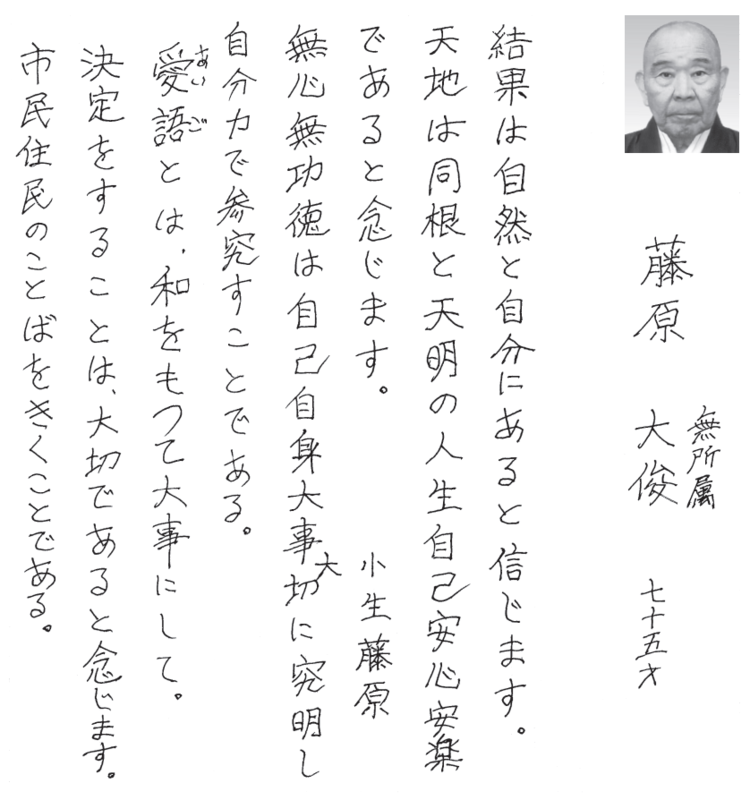 藤原　大俊
無所属
七十五才
結果は自然と自分にあると信じます。
天地は同根と天明の人生自己安心安楽
であると念じます。　小生藤原
無心無功徳は自己自身大事大切に究明し
自分力で参究すことである。
愛語とは、和をもつて大事にして。
あいご
決定をすることは、大切であると念じます。
市民住民のことばをきくことである。